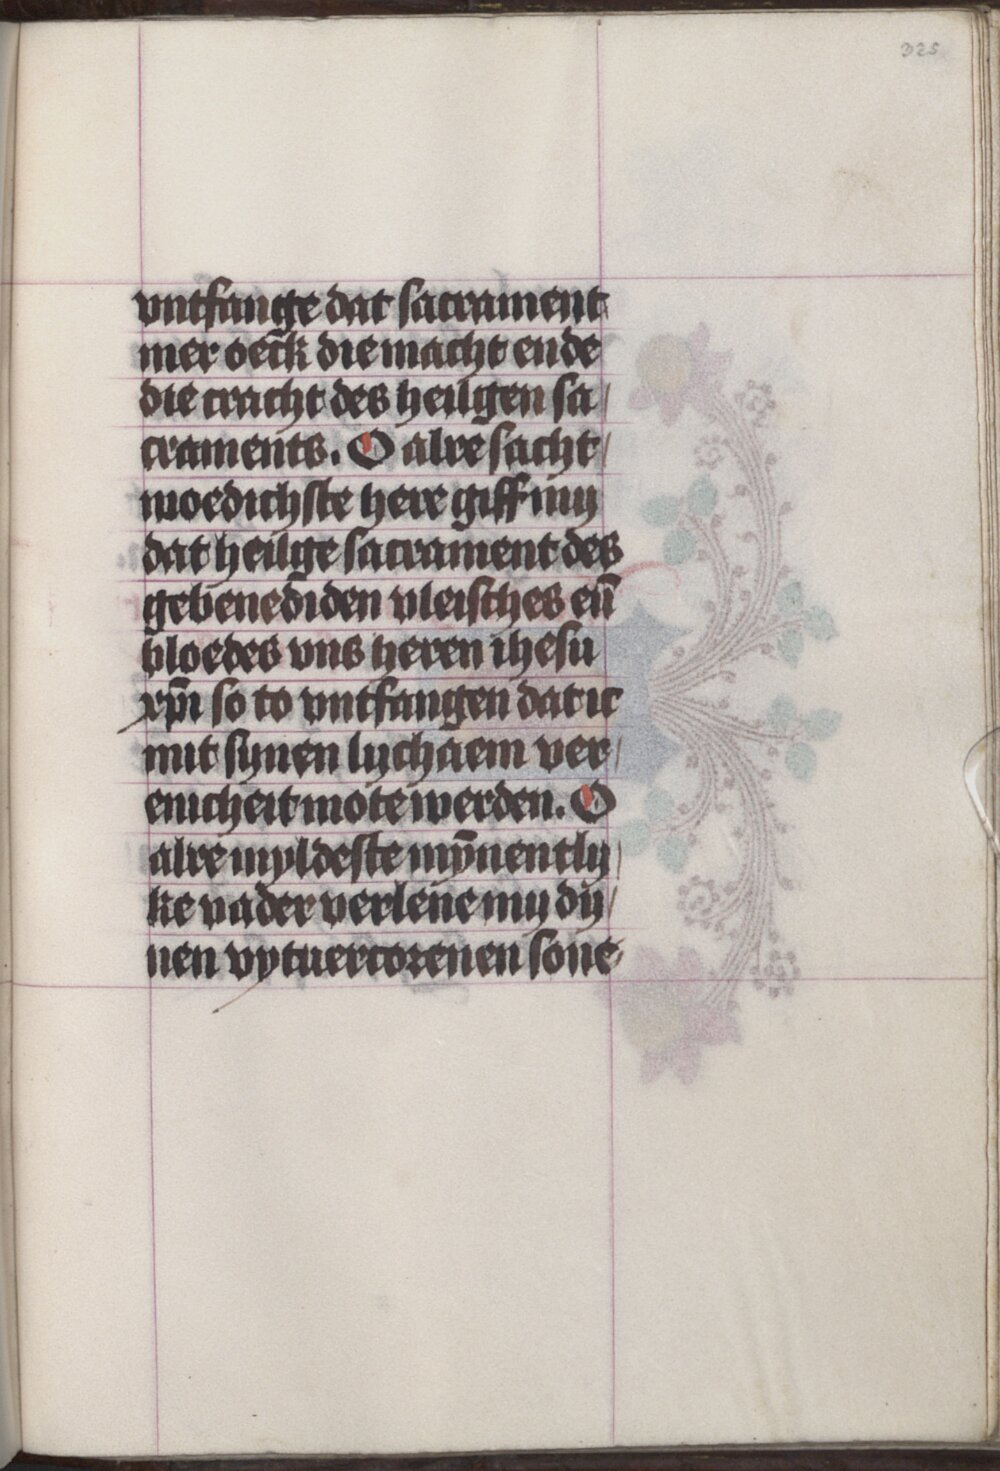 325
vntfange dat sacrament
mer oeck die macht ende
die cracht des heilgen sa/
craments. O alre sacht/
moedichste here giff my
dat heilge sacrament des
gebenediden vleisches en̄
bloedes vns heren ihesu
xp̄i so to vntfangen dat ic
mit synen lychaem ver/
enicheit mote werden. O
alre myldeste mȳnently/
ke vader verlene my dy/
nen vytuercorenen sone